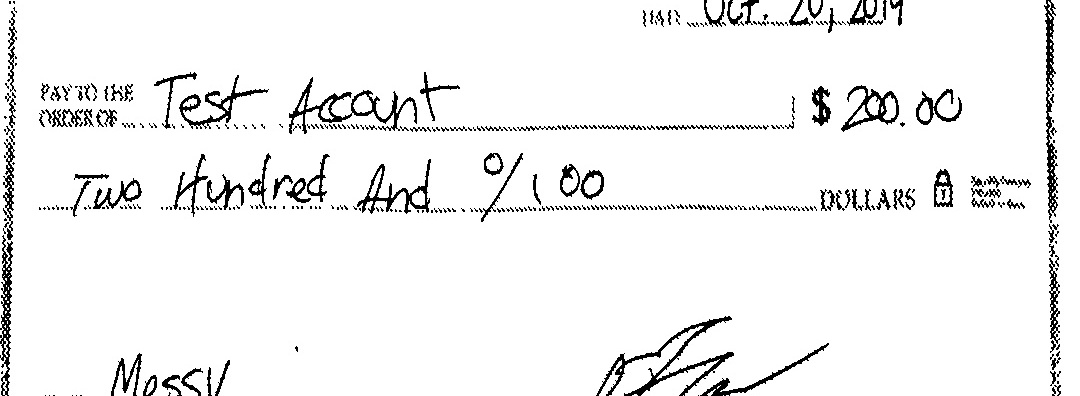 DATE Oct. 20, 2019
PAY TO THE
ORDER OF Test Account $ 200.00
Two Hundred And 0/100 DOLLARS
Messy